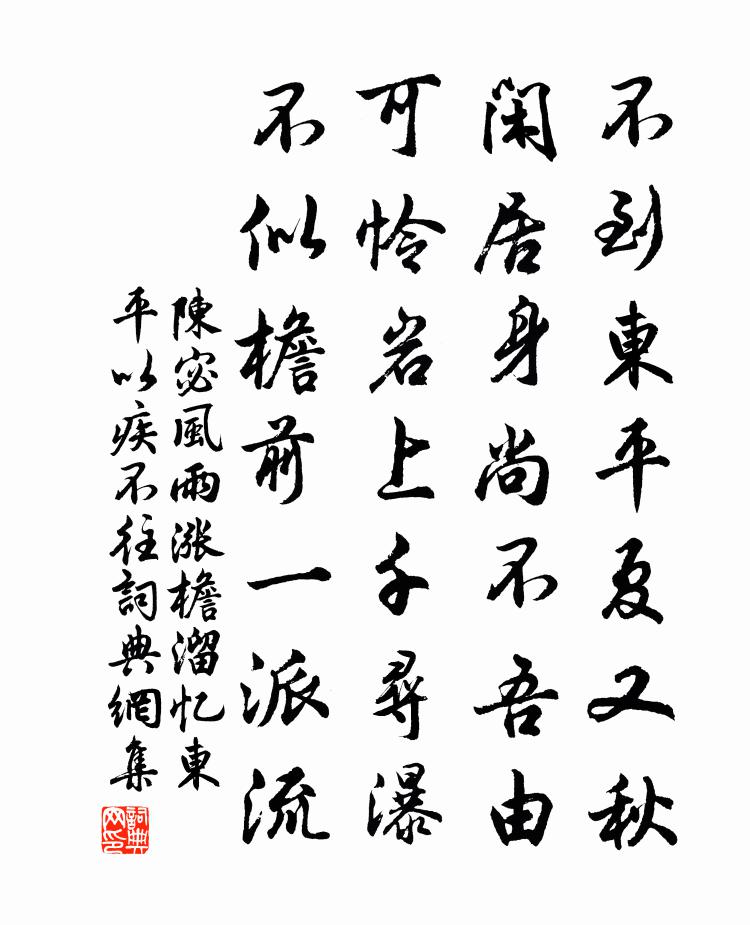 不到東平夏又秋
閑居身尚不吾由
可怜岩上千尋瀑
不似檐前一派流
陳宓風雨漲檐溜忆東
平以疾不往詞典網集
詞典网印